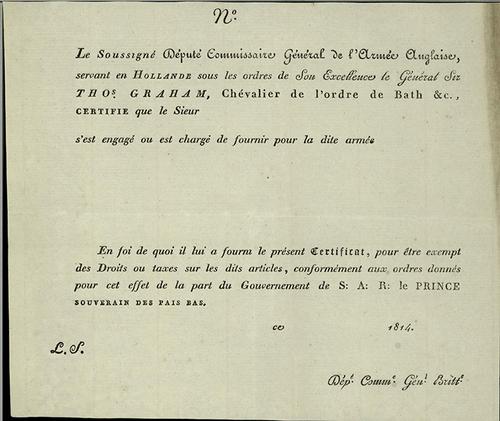 N.º
Le Soussigné Député Commissaire Général de l'Armée Anglaise,
servant en HOLLANDE sous les ordres de Son Excellence le Général Sir
THOS. GRAHAM, Chévalier de l'ordre de Bath &c.,
CERTIFIE que le Sieur
s'est engagé ou est chargé de fournir pour la dite armée
En foi de quoi il lui a fourni le présent Certificat, pour être exempt
des Droits ou taxes sur les dits articles, conformément aux ordres donnés
pour cet effet de la part du Gouvernement de S: A: R: le PRINCE
SOUVERAIN DES PAIS BAS.
ce 1814.
L. S.
Dépé. Comme. Génl. Britte.